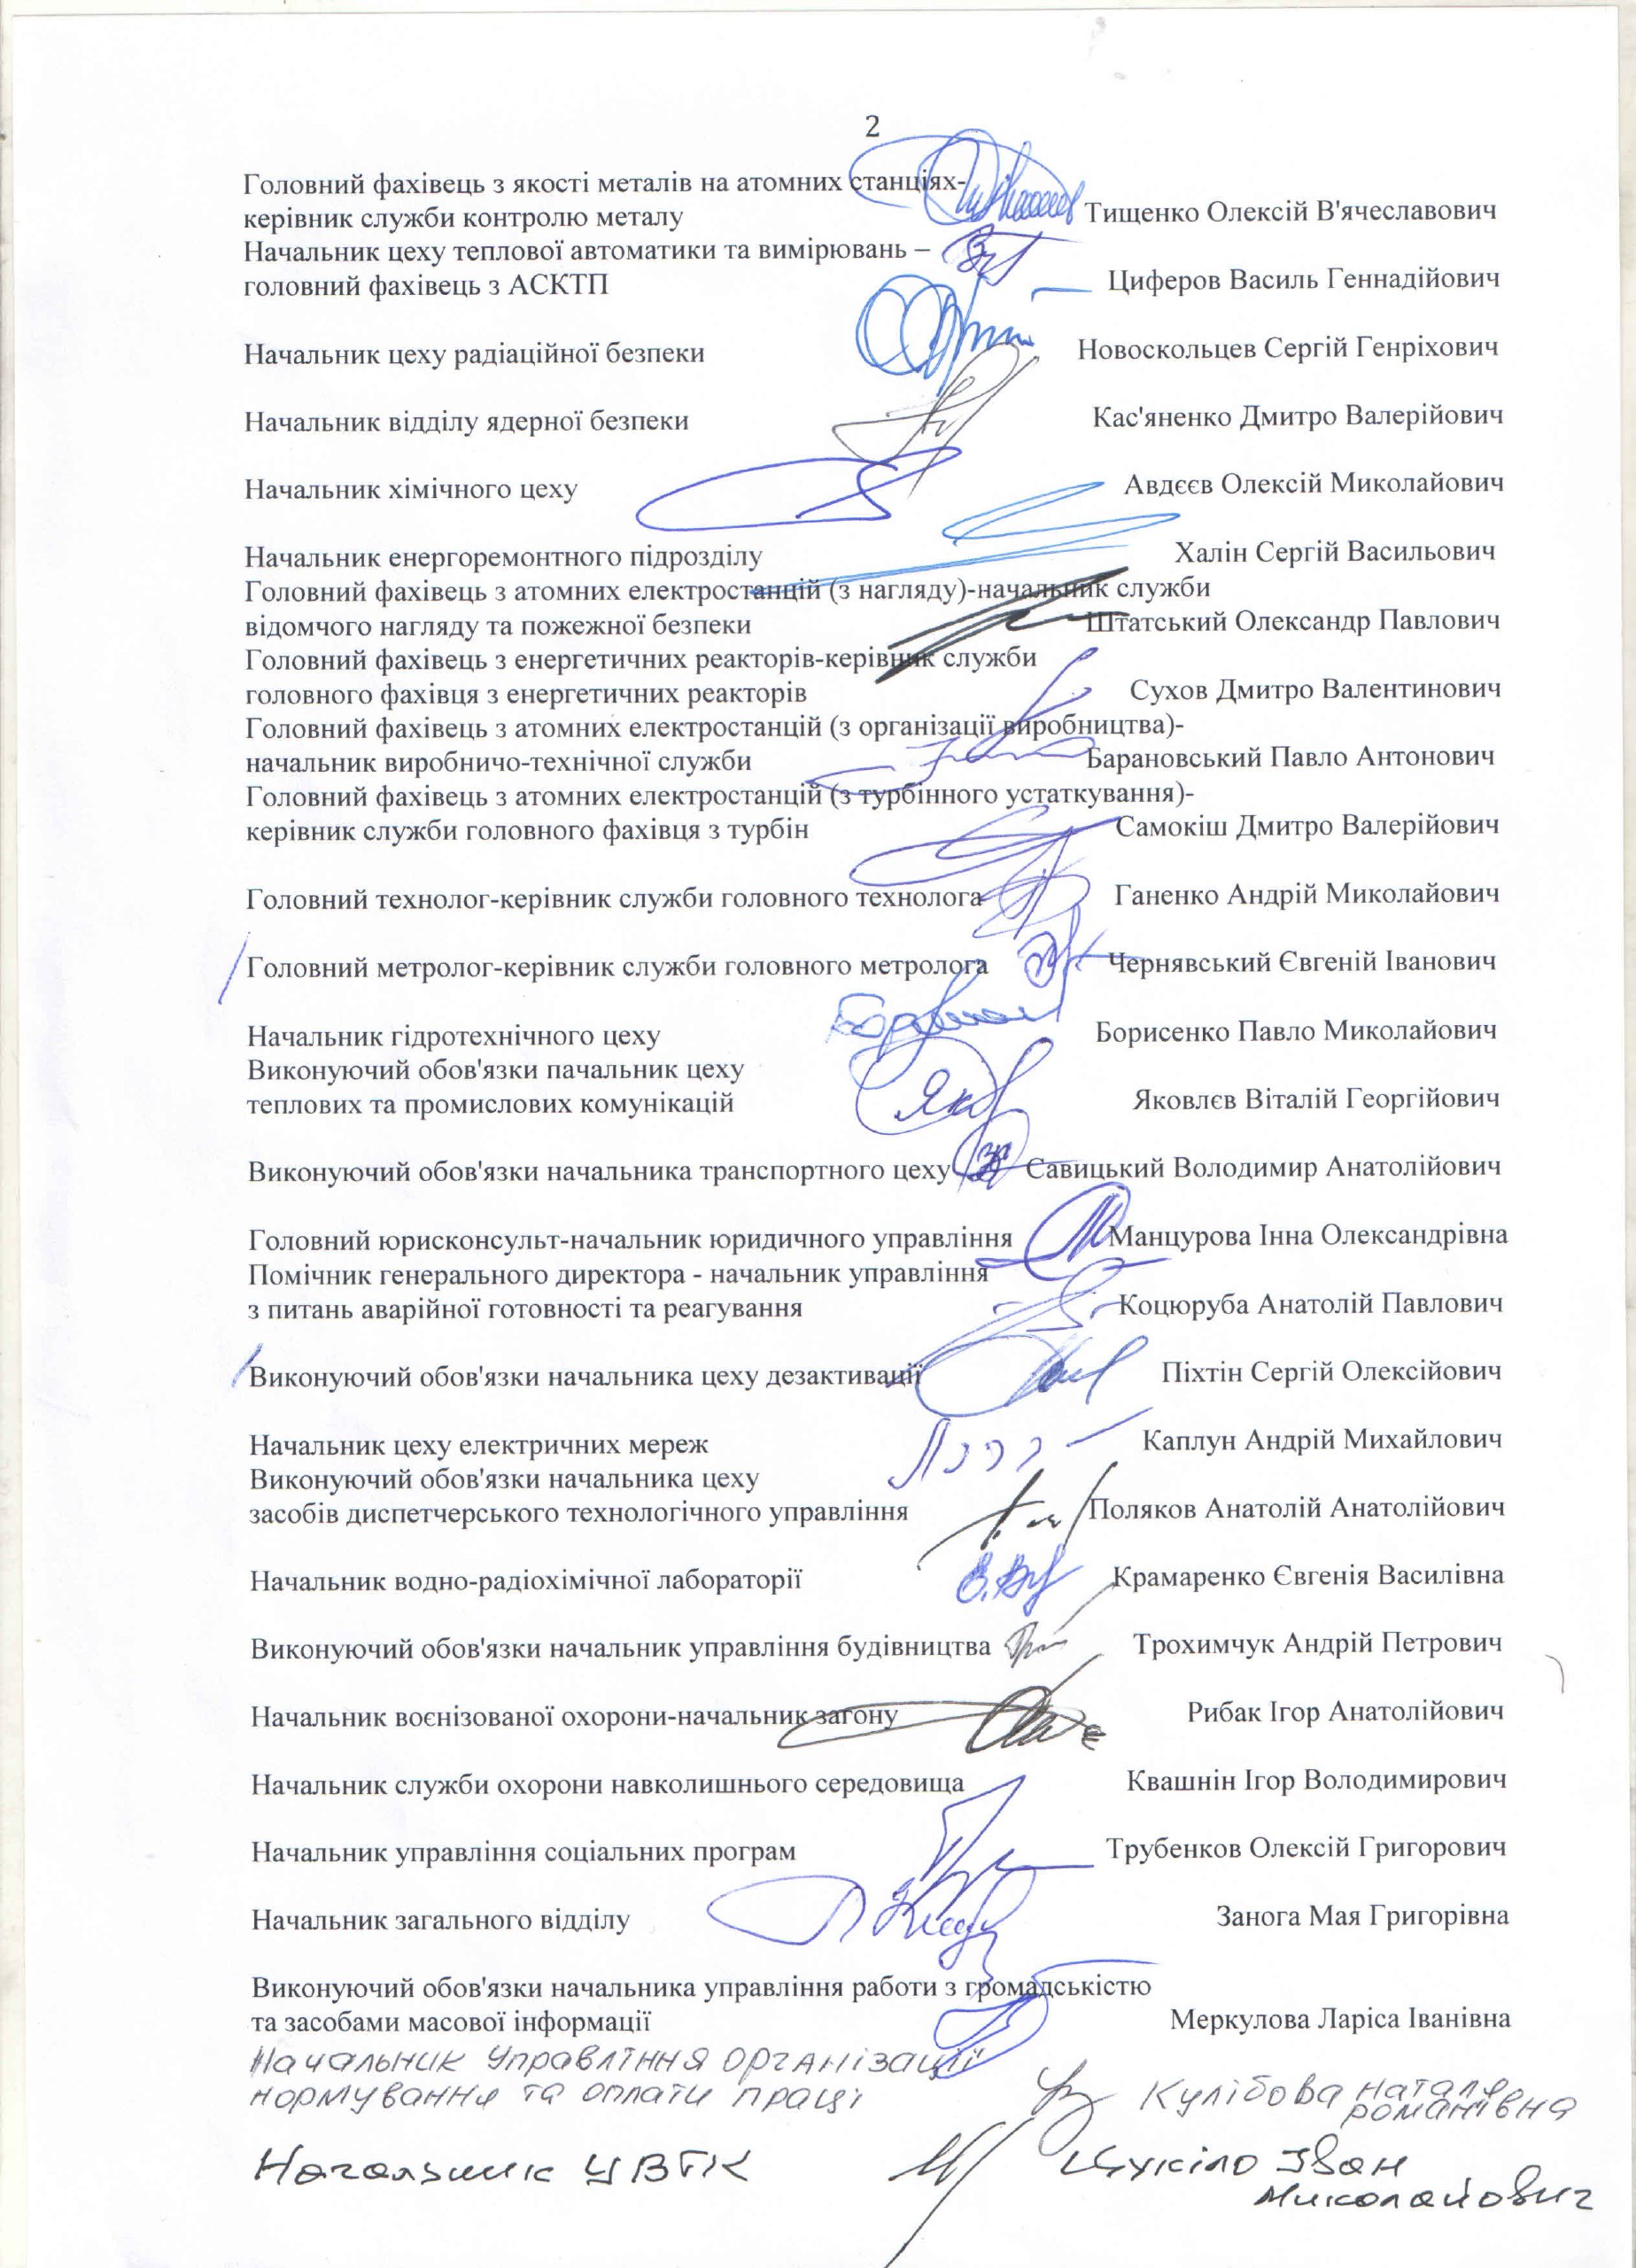 2
Головний фахівець з якості металів на атомних станціях-
керівник служби контролю металу Тищенко Олексій В'ячеславович
Начальник цеху теплової автоматики та вимірювань –
головний фахівець з АСКТП Циферов Василь Геннадійович
Начальник цеху радіаційної безпеки Новоскольцев Сергій Генріхович
Начальник відділу ядерної безпеки Кас'яненко Дмитро Валерійович
Начальник хімічного цеху Авдєєв Олексій Миколайович
Начальник енергоремонтного підрозділу Халін Сергій Васильович
Головний фахівець з атомних електростанцій (з нагляду)-начальник служби
відомчого нагляду та пожежної безпеки Штатський Олександр Павлович
Головний фахівець з енергетичних реакторів-керівник служби
головного фахівця з енергетичних реакторів Сухов Дмитро Валентинович
Головний фахівець з атомних електростанцій (з організації виробництва)-
начальник виробничо-технічної служби Барановський Павло Антонович
Головний фахівець з атомних електростанцій (з турбінного устаткування)-
керівник служби головного фахівця з турбін Самокіш Дмитро Валерійович
Головний технолог-керівник служби головного технолога Ганенко Андрій Миколайович
Головний метролог-керівник служби головного метролога Чернявський Євгеній Іванович
Начальник гідротехнічного цеху Борисенко Павло Миколайович
Виконуючий обов'язки пачальник цеху
теплових та промислових комунікацій Яковлєв Віталій Георгійович
Виконуючий обов'язки начальника транспортного цеху Савицький Володимир Анатолійович
Головний юрисконсульт-начальник юридичного управління Манцурова Інна Олександрівна
Помічник генерального директора - начальник управління
з питань аварійної готовності та реагування Коцюруба Анатолій Павлович
Виконуючий обов'язки начальника цеху дезактивації Піхтін Сергій Олексійович
Начальник цеху електричних мереж Каплун Андрій Михайлович
Виконуючий обов'язки начальника цеху
засобів диспетчерського технологічного управління Поляков Анатолій Анатолійович
Начальник водно-радіохімічної лабораторії Крамаренко Євгенія Василівна
Виконуючий обов'язки начальник управління будівництва Трохимчук Андрій Петрович
Начальник воєнізованої охорони-начальник загону Рибак Ігор Анатолійович
Начальник служби охорони навколишнього середовища Квашнін Ігор Володимирович
Начальник управління соціальних програм Трубенков Олексій Григорович
Начальник загального відділу Занога Мая Григорівна
Виконуючий обов'язки начальника управління работи з громадськістю
та засобами масової інформації Меркулова Ларіса Іванівна
Начальник Управління організації
нормування та оплати праці Кулібова Наталя
романівна
Начальник Іван
Миколайович